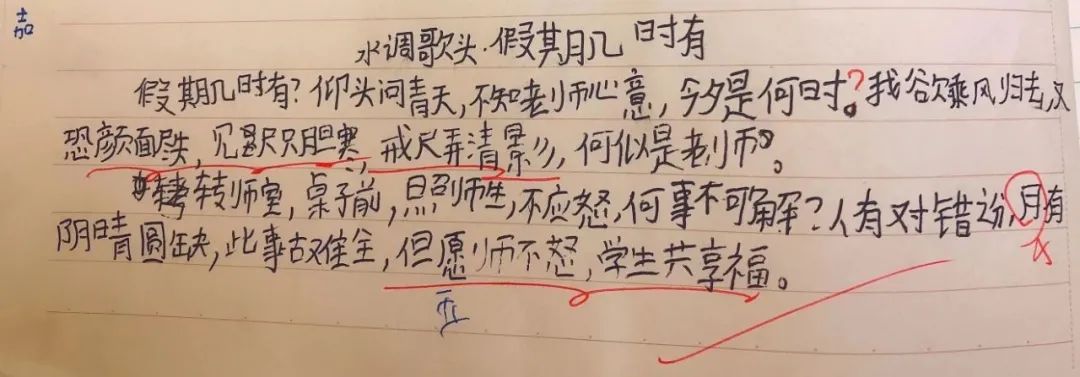 水调歌头·假期几时有
假期几时有?仰头问青天,不知老师心意,今夕是何时?我欲乘风归去,又
恐颜面尽失,胆寒,戒尺弄清影,何似是老师。
转师室,桌子前,照师生,不应怒,何事不可解?人有对错,月有
阴晴圆缺,此事古难全,但愿师不怒,学生共享福。